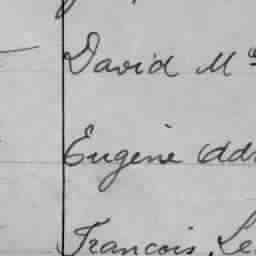 David Mc
Eugene Add
Francois. Le